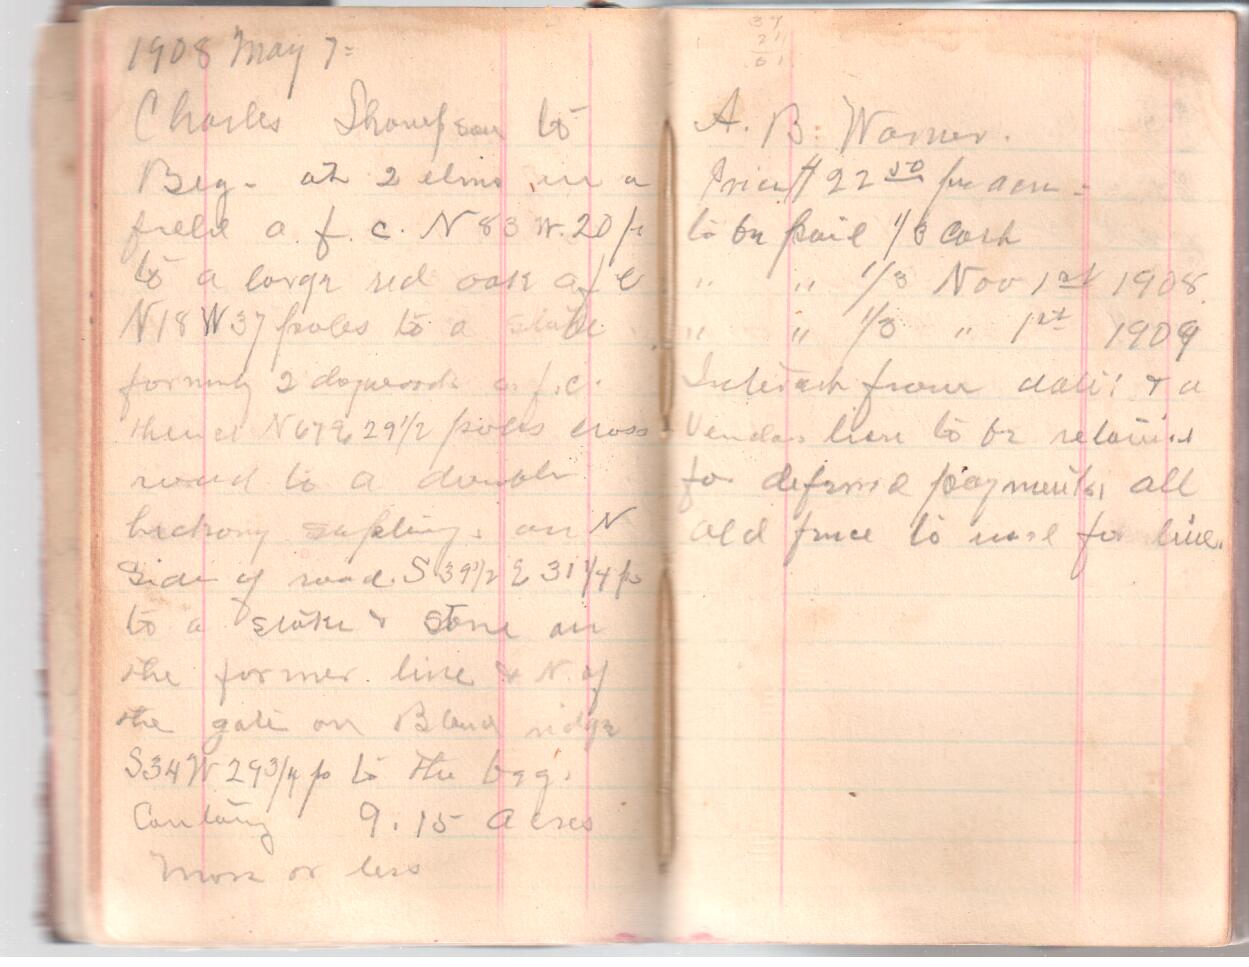 1908 May 7=
Charles Thompson to
Beg. at 2 elms in a
field a. f. c. N 83 W. 20 p
to a large red oak a f c
N 18 W 37 poles to a stake
formerly 2 dogwoods a. f. c.
thence N 67 E 29 1/2 poles cross
road to a double
hickory sapling. on N
Side of road. S 39 1/2 E 31 1/4 p
to a stake & stone on
the former line & N. of
the gate on Bland ridge
S 34 W 29 3/4 p to the beg.
Containg 9.15 acres
more or less
37
24
61
A. B. Warner.
Price $ 22 50 per acre -
to be paid 1/3 cash
" " 1/3 Nov 1st 1908.
" " 1/3 " 1st 1909
Interest from date: & a
Vendors lien to be retained
for deferred payments, all
old fence to use for line.